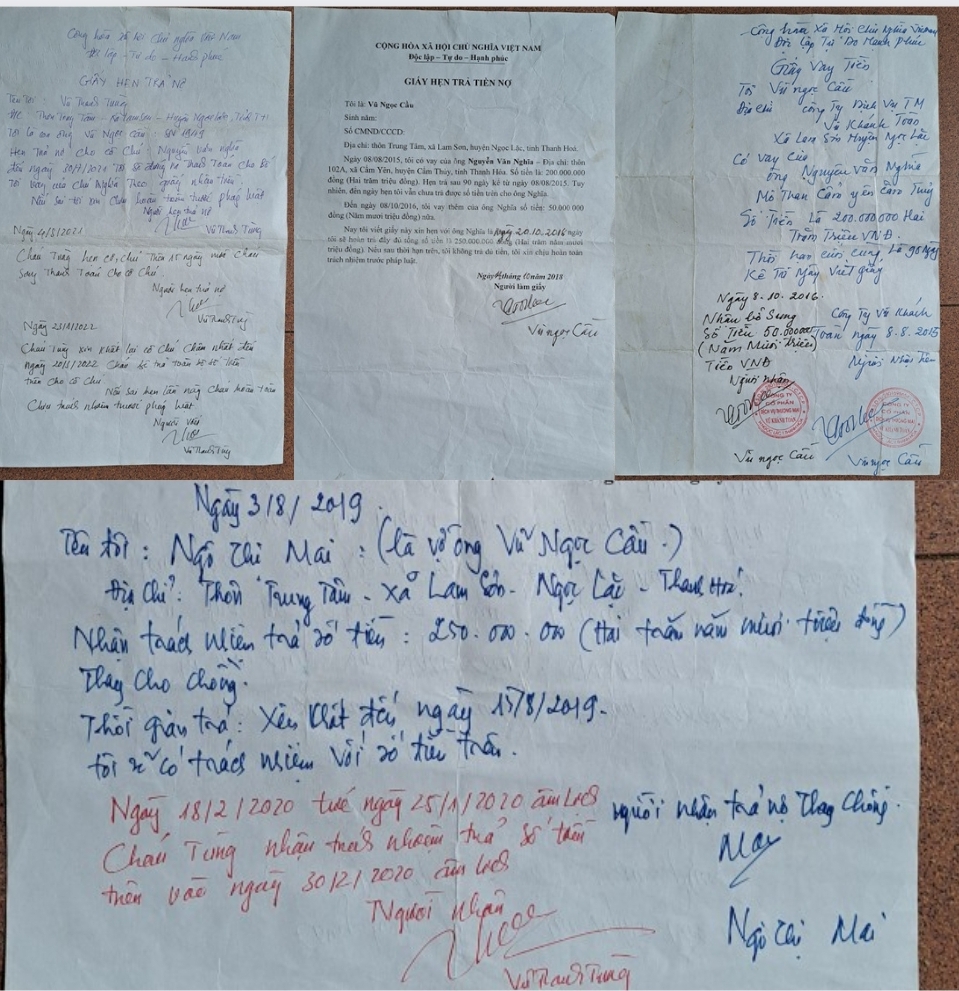 Cộng hòa xã hội chủ nghĩa Việt Nam
Độc lập - Tự do - Hạnh phúc
GIẤY HẸN TRẢ NỢ
Tên tôi: Vũ Thanh Tùng
Đ/C: Thôn Trung Tâm - Xã Lam Sơn - Huyện Ngọc Lặc, Tỉnh T.H
Tôi là con ông Vũ Ngọc Cầu
Hẹn trả nợ cho cô Chú: Nguyễn Văn Nghĩa
đến ngày Tôi sẽ đứng ra Thanh Toán Cho Bố
Tôi vay của Chú Nghĩa Theo giấy nhận tiền.
Nếu sai tôi xin Chịu hoàn toàn trước pháp luật
Người hẹn trả nợ
Vũ Thanh Tùng
Cháu Tùng hẹn cô, chú Thêm 15 ngày nữa Cháu
Thanh Toán Cho cô Chú.
Người hẹn trả nợ
Vũ Thanh Tùng
Cháu Tùng xin Khất lại cô Chú Chậm nhất đến
ngày Cháu sẽ trả toàn bộ số Tiền
trên cho cô Chú.
Nếu sai hẹn lần này Cháu hoàn toàn
Chịu trách nhiệm trước pháp luật
Người viết
Vũ Thanh Tùng
CỘNG HÒA XÃ HỘI CHỦ NGHĨA VIỆT NAM
Độc lập – Tự do – Hạnh phúc
GIẤY HẸN TRẢ TIỀN NỢ
Tôi là: Vũ Ngọc Cầu
Sinh năm:
Số CMND/CCCD:
Địa chỉ: thôn Trung Tâm, xã Lam Sơn, huyện Ngọc Lặc, tỉnh Thanh Hoá.
Ngày 08/08/2015, tôi có vay của ông Nguyễn Văn Nghĩa – Địa chỉ: thôn
102A, xã Cẩm Yên, huyện Cẩm Thủy, tỉnh Thanh Hóa. Số tiền là: 200.000.000
đồng (Hai trăm triệu đồng). Hẹn trả sau 90 ngày kể từ ngày 08/08/2015. Tuy
nhiên, đến ngày hẹn tôi vẫn chưa trả được số tiền trên cho ông Nghĩa.
Đến ngày 08/10/2016, tôi vay thêm của ông Nghĩa số tiền: 50.000.000
đồng (Năm mươi triệu đồng) nữa.
Nay tôi viết giấy này xin hẹn với ông Nghĩa là
tôi sẽ hoàn trả đầy đủ tổng số tiền là 250.000.000 đồng (Hai trăm năm mươi
triệu đồng). Nếu sau thời hạn trên, tôi không trả đủ tiền, tôi xin chịu hoàn toàn
trách nhiệm trước pháp luật.
Ngày tháng 10 năm 2018
Người làm giấy
Vũ ngọc Cầu
Cộng hòa Xã Hội Chủ Nghĩa
Độc Lập Tự Do Hạnh phúc
Giấy Vay Tiền
Tôi Vũ ngọc Cầu
Địa chỉ công Ty Dịch Vụ TM
Vũ Khánh Toàn
Xã Lam Sơn Huyện Ngọc Lặc
Có vay của
ông Nguyễn văn Nghĩa
Mỏ Than Cẩm yên Cẩm Thủy
Số Tiền Là 200.000.000 Hai
Trăm Triệu VNĐ.
Thời hạn cuối cùng Là 90 Ngày
Kể Từ Ngày Viết giấy
Ngày 8.10.2016.
Nhận bổ Sung
Số Tiền 50.000.000
(Năm Mươi triệu)
Tiền VNĐ
Người nhận
Vũ ngọc Cầu
Công Ty Vũ Khánh
Toàn ngày 8.8.2015
Người Nhận Tiền
CÔNG TY
CỔ PHẦN
DỊCH VỤ THƯƠNG MẠI
VŨ KHÁNH TOÀN
Vũ ngọc Cầu
Ngày 3/8/2019.
Tên tôi: Ngô Thị Mai: (là vợ ông Vũ Ngọc Cầu.)
Địa Chỉ: Thôn Trung Tâm - Xã Lam Sơn - Ngọc Lặc - Thanh Hoá.
Nhận trách nhiệm trả số tiền: 250.000.000 (Hai trăm năm mươi triệu đồng)
Thay cho chồng.
Thời gian trả: Xin khất đến ngày 15/8/2019.
tôi sẽ có trách nhiệm với số tiền trên.
người nhận trả nợ Thay Chồng.
Mai
Ngô Thị Mai
Ngày 18/2/2020 tức ngày 25/1/2020 âm lịch
Cháu Tùng nhận trách nhiệm trả số tiền
trên vào ngày 30/2/2020 âm lịch
Người nhận
Vũ Thanh Tùng